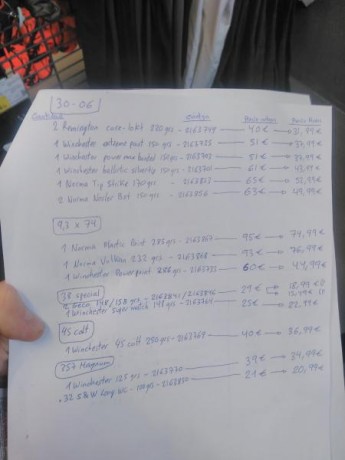 30-06
Cantidad Código Precio antes Precio Ahora
2 Remington core-lokt 220grs - 2163749 — 40€ → 31,99€
1 Winchester extreme point 150grs - 2163925 — 51€ → 37,99€
1 Winchester power max bonded 150grs - — 51€ → 37,99€
1 Winchester ballistic silvertip 150grs - — 61€ → 43,99€
1 Norma Tip Strike 170grs - 2163822 — 65€ → 52,99€
2 Norma Nosler Bst 150grs - 2163856 — 63€ → 49,99€
9,3 x 74
1 Norma Plastic Point 285grs - — 95€ → 74,99€
1 Norma Vulkan 232grs - — 93€ → 76,99€
1 Winchester Powerpoint 286grs - — 60€ → 44,99€
38 special
2 Geco 148/158grs - 2163841/2163846 — 29€ → 18,99€
1 Winchester super match 148grs - 2163764 — 25€ → 22,99€
45 colt
1 Winchester 45 colt 250grs - 2163769 — 40€ → 36,99€
357 Magnum
1 Winchester 125grs - 2163770 — 39€ → 34,99€
.32 S&W long - 2163830 — 21€ → 20,99€